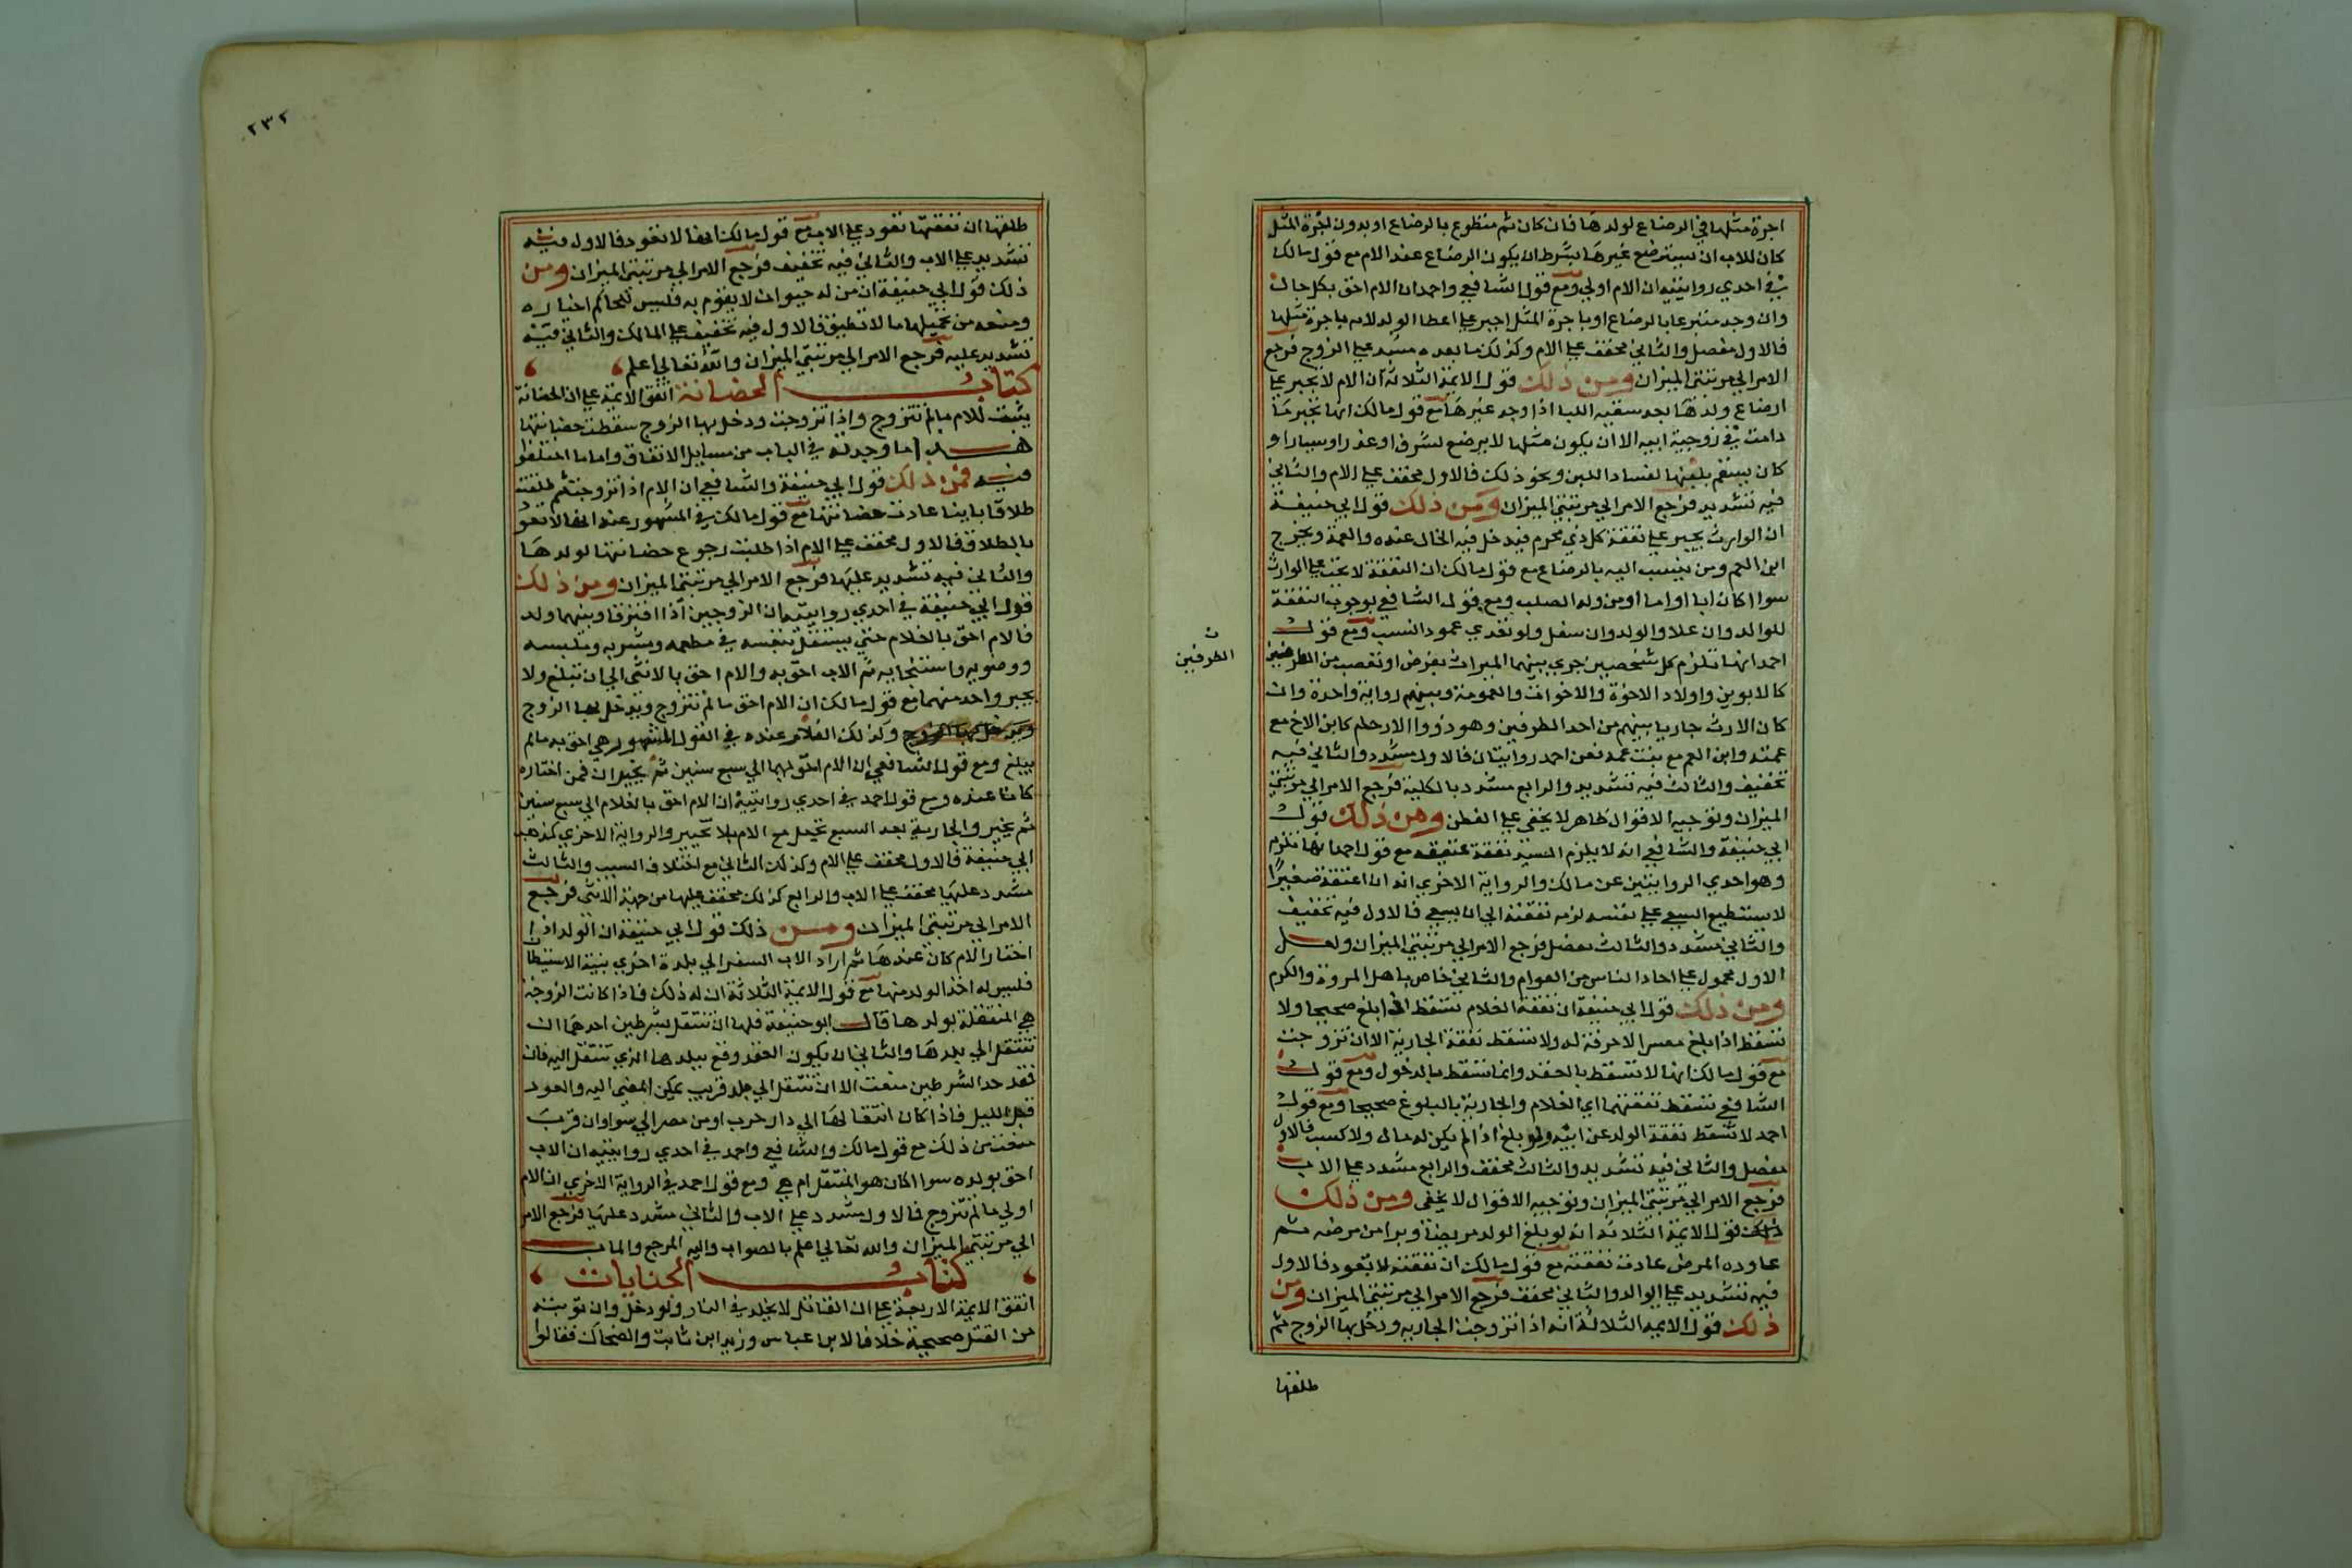 اجرة مثلها في الرضاع لولدها فان كان ثم متطوع بالرضاع او بدون اجرة المثل
كان للاب ان يسترضع غيرها بشرط ان يكون الرضاع عند الام مع قول مالك
في احدي روايتيه ان الام اولي ومع قول الشافعي واحمد ان الام احق بكل حال
وان وجد متبرعا بالرضاع او باجرة المثل اجبر علي اعطا الولد لامه باجرة مثلها
فالاول مفصل والثاني مخفف علي الام وكذلك ما بعده مشدد علي الزوج فرجع
الامر الي مرتبتي الميزان ومن ذلك قول الايمة الثلاثة ان الام لا يجبر علي
ارضاع ولدها بعد سقيه اللبا اذا وجد غيرها مع قول مالك انها تجبر ما
دامت في زوجية ابيه الا ان يكون مثلها لا يرضع لشرف او عذر او يسار او
كان يسقم بلبنها لفساد اللبن ونحو ذلك فالاول مخفف علي الام والثاني
فيه تشديد فرجع الامر الي مرتبتي الميزان ومن ذلك قول ابي حنيفة
ان الوارث يجبر علي نفقة كل ذي محرم فيدخل فيه الخال عنده والعمة ويخرج
ابن العم ومن ينسب اليه بالرضاع مع قول مالك ان النفقة لا تجب علي الوارث
سوا اكان ابا او اما او من ولد الصلب ومع قول الشافعي بوجوب النفقة
للوالد وان علا والولد وان سفل ولو تعدي عمود النسب ومع قول
احمد انها تلزم كل شخصين جري بينهما الميراث بفرض او تعصيب من الطرفين
كالابوين واولاد الاخوة والاخوات والعمومة وبينهم رواية واحدة وان
كان الارث جاريا بينهم من احد الطرفين وهو ذووا الارحام كابن الاخ مع
عمته وابن العم مع بنت عمه فعن احمد روايتان فالاول مشدد والثاني فيه
تخفيف والثالث فيه تشديد والرابع مشدد بالكلية فرجع الامر الي مرتبتي
الميزان وتوجيه الاقوال ظاهر لا يخفي علي الفطن ومن ذلك قول
ابي حنيفة والشافعي انه لا يلزم السيد نفقة عتيقه مع قول احمد انها تلزم
وهو احدي الروايتين عن مالك والرواية الاخري انه ان اعتقه صغيرا
لا يستطيع السعي علي نفسه لزمه نفقته الي ان يسعي فالاول فيه تخفيف
والثاني مشدد والثالث مفصل فرجع الامر الي مرتبتي الميزان ولعل
الاول محمول علي احاد الناس من العوام والثاني خاص باهل المروة والكرم
ومن ذلك قول ابي حنيفة ان نفقة الغلام تسقط اذا بلغ صحيحا ولا
تسقط اذا بلغ معسرا لا حرفة له ولا تسقط نفقة الجارية الا ان تزوجت
مع قول مالك انها لا تسقط بالعقد وانما تسقط بالدخول ومع قول
الشافعي تسقط نفقتهما اي الغلام والجارية بالبلوغ صحيحا ومع قول
احمد لا تسقط نفقة الولد عن ابيه ولو بلغ اذا لم يكن له مال ولا كسب فالاول
مفصل والثاني فيه تشديد والثالث مخفف والرابع مشدد علي الاب
فرجع الامر الي مرتبتي الميزان وتوجيه الاقوال لا يخفي ومن ذلك
ذلك قول الايمة الثلاثة انه لو بلغ الولد مريضا وبرا من مرضه ثم
عاوده المرض عادت نفقته مع قول مالك ان نفقته لا تعود فالاول
فيه تشديد علي الوالد والثاني مخفف فرجع الامر الي مرتبتي الميزان ومن
ذلك قول الايمه الثلاثة انه اذا تزوجت الجاريه ودخل بها الزوج ثم
طلقها
ن
الطرفين
٢٣٢
طلقها ان نفقتها تعود علي الاب مع قول مالك انها لا تعود فالاول فيه
تشديد علي الاب والثاني فيه تخفيف فرجع الامر الي مرتبتي الميزان ومن
ذلك قول ابي حنيفة ان من له حيوان لا يقوم به فليس للحاكم اجباره
ومنعه من تحميلها ما لا تطيق فالاول فيه تخفيف علي المالك والثاني فيه
تشديد عليه فرجع الامر الي مرتبتي الميزان والله تعالي اعلم
كتاب الحضانة اتفق الايمة علي ان الحضانة
يثبت للام ما لم تتزوج واذا تزوجت ودخل بها الزوج سقطت حضانتها
هذا ما وجدته في الباب من مسايل الاتفاق واما ما اختلفوا
فيه فمن ذلك قول ابي حنيفة والشافعي ان الام اذا تزوجت ثم طلقت
طلاقا باينا عادت حضانتها مع قول مالك في المشهور عنه انها لا تعود
بالطلاق فالاول مخفف علي الام اذا طلبت رجوع حضانتها لولدها
والثاني فيه تشديد عليها فرجع الامر الي مرتبتي الميزان ومن ذلك
قول ابي حنيفة في احدي روايتيه ان الزوجين اذا افترقا وبينهما ولد
فالام احق بالغلام حتي يستقل بنفسه في مطعمه ومشربه وملبسه
ووضويه واستنجايه ثم الاب احق به والام احق بالانثي الي ان تبلغ ولا
يجبر واحد منهما مع قول مالك ان الام احق ما لم تتزوج ويدخل بها الزوج
ويدخل بها الزوج وكذلك الغلام عنده في القول المشهور هي احق به ما لم
يبلغ ومع قول الشافعي ان الام احق لهما الي سبع سنين ثم يخيران فمن اختاره
كانا عنده ومع قول احمد في احدي روايتيه ان الام احق بالغلام الي سبع سنين
ثم يخير والجارية بعد السبع تجعل مع الام بلا تخيير والرواية الاخري كمذهب
ابي حنيفة فالاول مخفف علي الام وكذلك الثاني مع اختلاف السبب والثالث
مشدد عليها مخفف علي الاب والرابع كذلك مخفف عليها من جهة الانثي فرجع
الامر الي مرتبتي الميزان ومن ذلك قول ابي حنيفة ان الولد اذا
اختار الام كان عندها ثم اراد الاب السفر الي بلدة اخري بنية الاستيطان
فليس له اخذ الولد منها مع قول الايمة الثلاثة ان له ذلك فاذا كانت الزوجة
هي المنتقلة بولدها قال ابو حنيفة فلها ان تنتقل بشرطين احدهما ان
تنتقل الي بلدها والثاني ان يكون العقد وقع ببلدها الذي تنتقل اليه فان
فقد احد الشرطين منعت الا ان تنتقل الي بلد قريب يمكن المضي اليه والعود
قبل الليل فاذا كان انتقالها الي دار حرب او من مصر الي سواد وان قرب
منعت من ذلك مع قول مالك والشافعي واحمد في احدي روايتيه ان الاب
احق بولده سوا اكان هو المنتقل ام هي ومع قول احمد في الرواية الاخري ان الام
اولي ما لم تتزوج فالاول مشدد علي الاب والثاني مشدد عليها فرجع الامر
الي مرتبتي الميزان والله تعالي اعلم بالصواب واليه المرجع والماب
كتاب الجنايات
اتفق الايمة الاربعة علي ان القاتل لا يخلد في النار ولو دخل وان توبته
من القتل صحيحة خلافا لابن عباس وزيد ابن ثابت والضحاك فقالوا